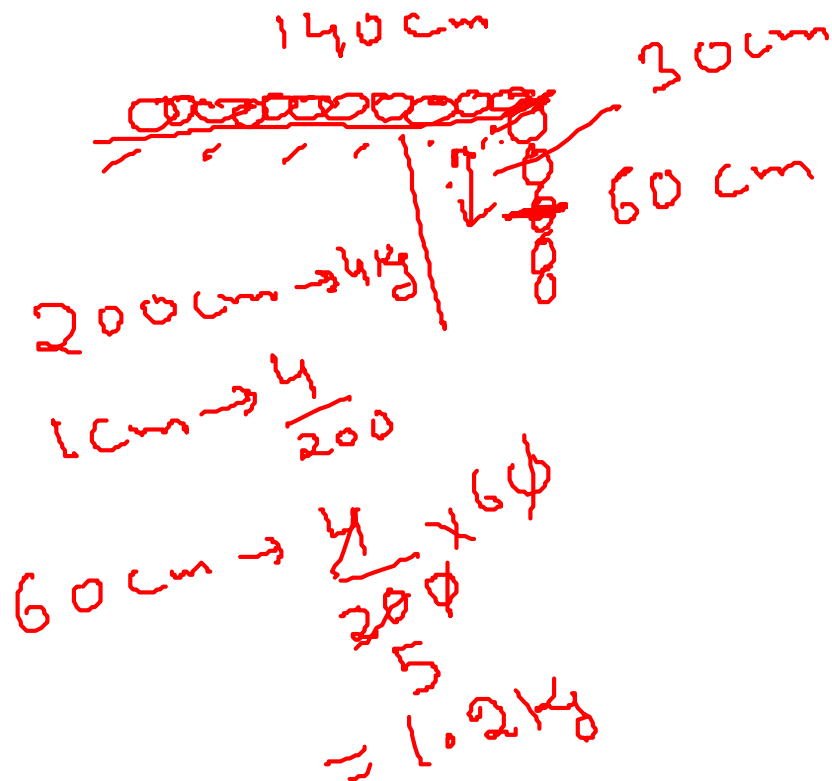 140cm
30cm
60cm
200cm → 4kg
1cm → 4/200
60cm → 4/200 × 60
5
= 1.2kg